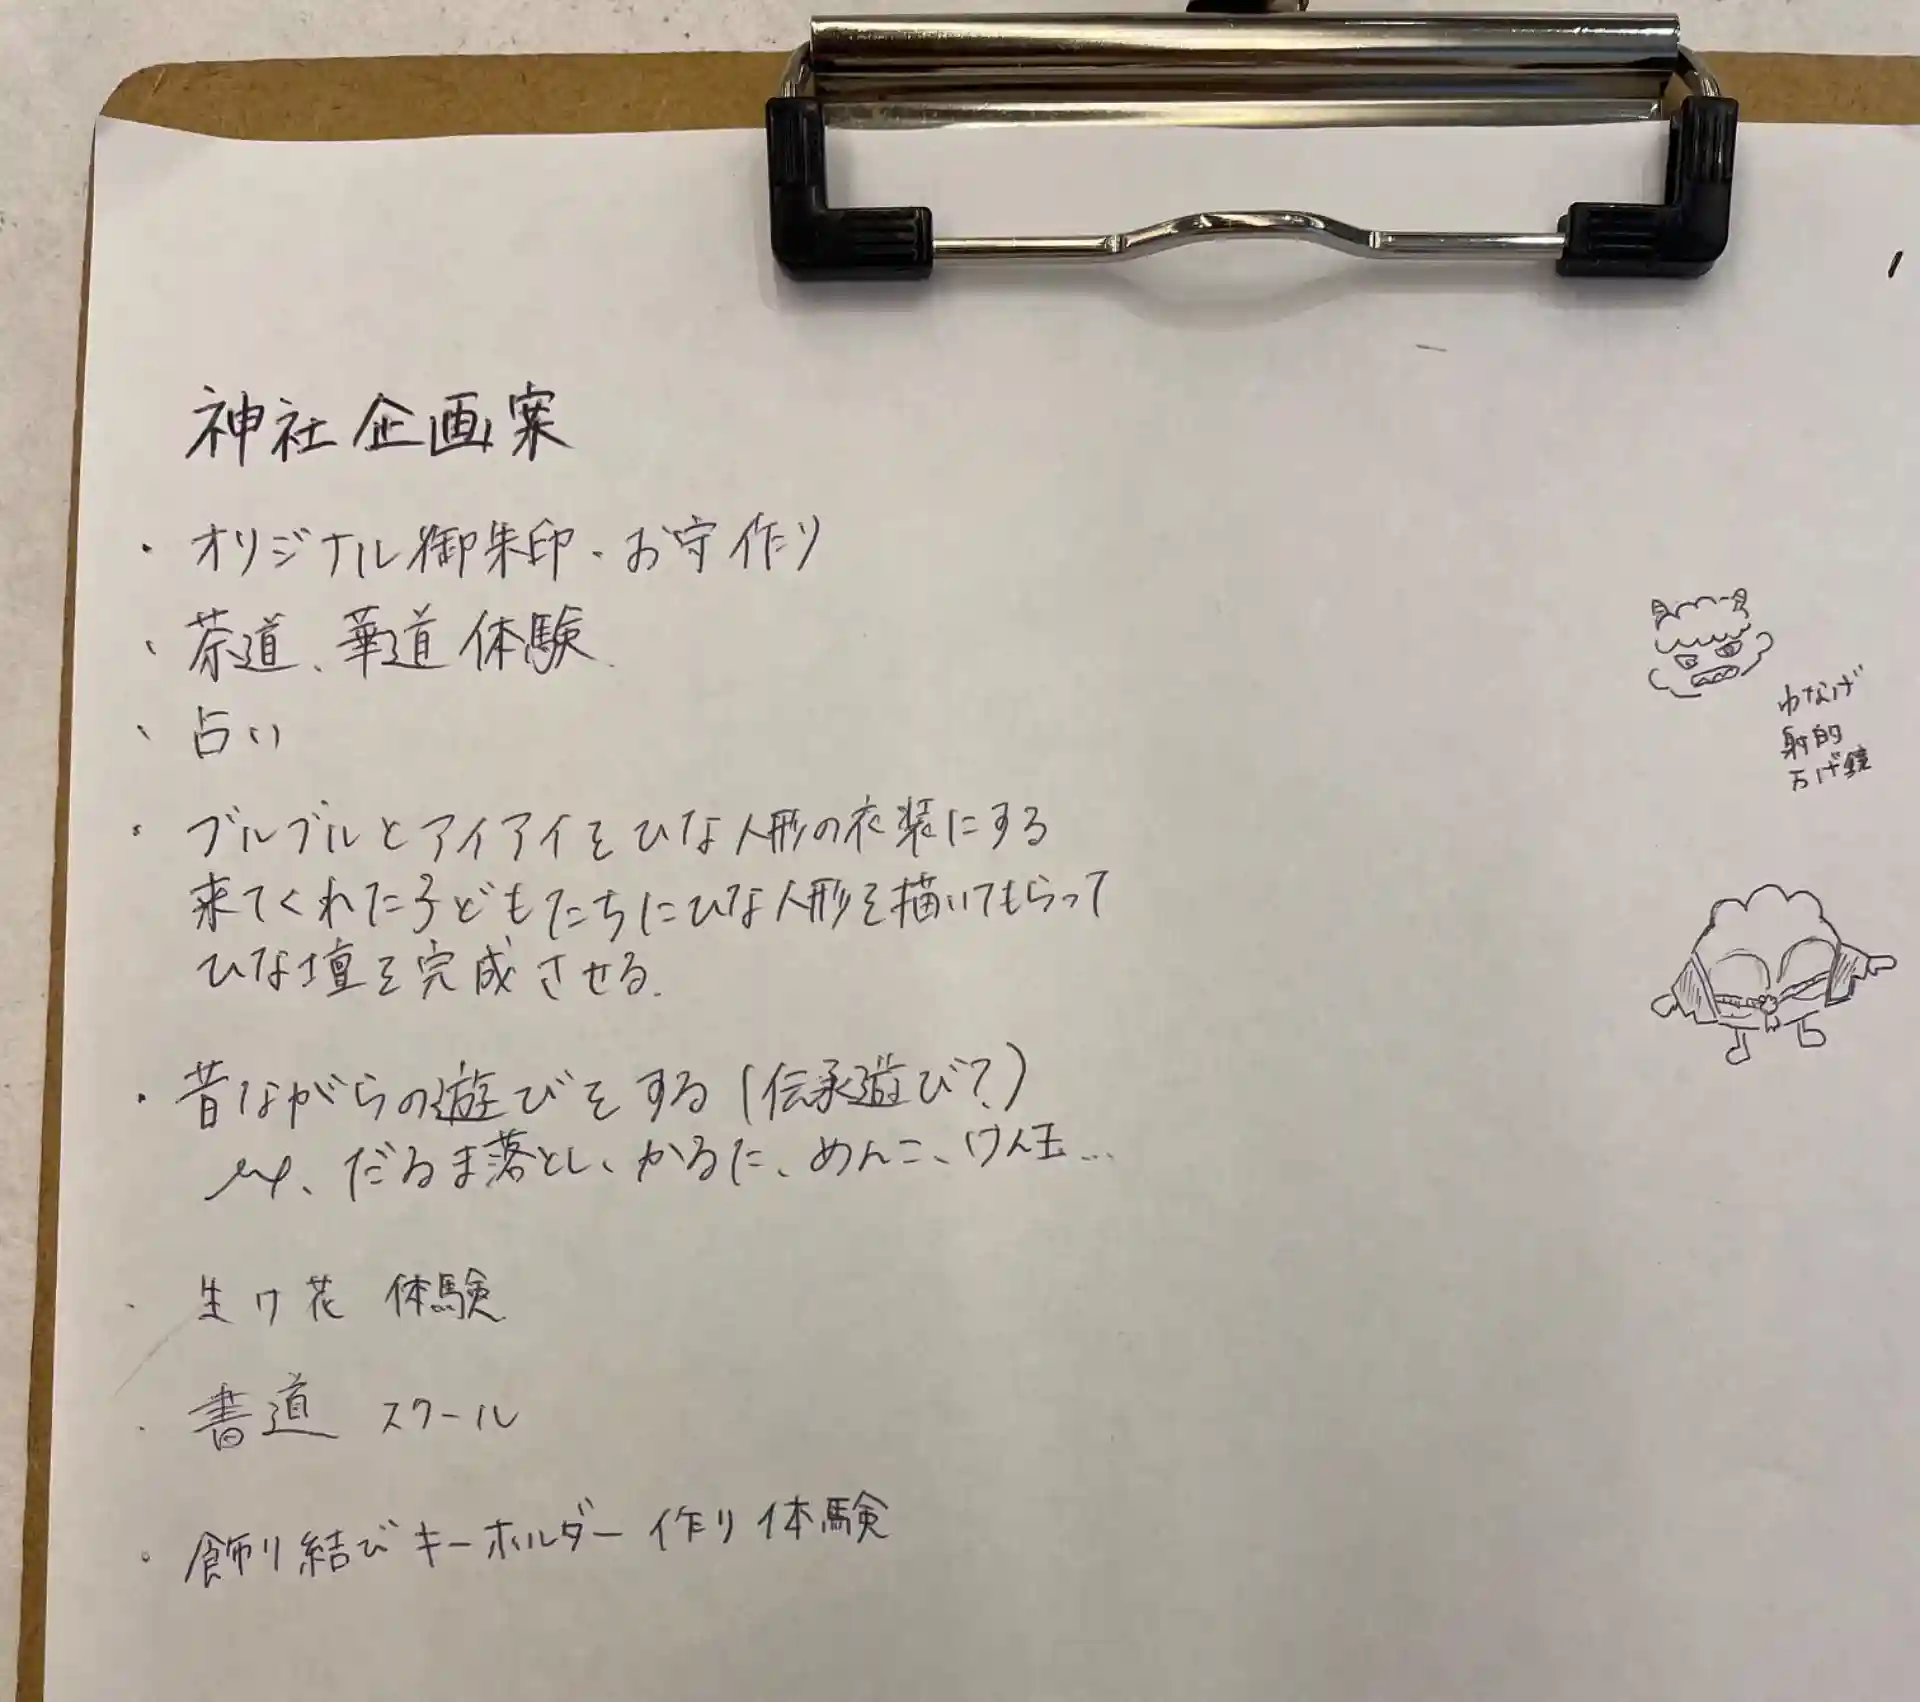 神社企画案
・オリジナル御朱印・お守作り
・茶道、華道体験
・占い
・ブルブルとアイアイをひな人形の衣装にする
来てくれた子どもたちにひな人形を描いてもらって
ひな壇を完成させる.
・昔ながらの遊びをする(伝承遊び?)
ex、だるま落とし、かるた、めんこ、けん玉...
・生け花 体験
・書道 スクール
・飾り結びキーホルダー作り体験
わなげ
射的